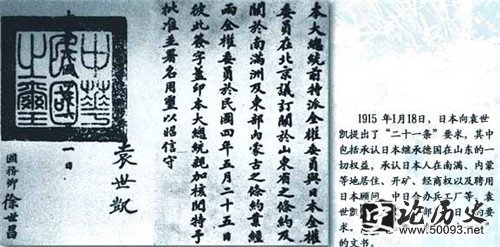 本大總統前特派全權委員與日本全權
委員在北京議訂關於山東省之條約及
關於南滿洲及東部內蒙古之條約業經
兩全權委員於民國四年五月二十五日
彼此簽字蓋印本大總統親加核閱特予
批准並署名用璽以昭信守
袁世凱
中華民國之璽
一日
國務卿 徐世昌
1915 年1月18日，日本向袁世
凯提出了“二十一条”要求，其中
包括承认日本继承德国在山东的一
切权益，承认日本人在南满、内蒙
等地居住、开矿、经商权以及聘用
日本顾问、中日合办兵工厂等。袁
世凯 部 日 的要
求。
的文书。
论历史
www.50093.net